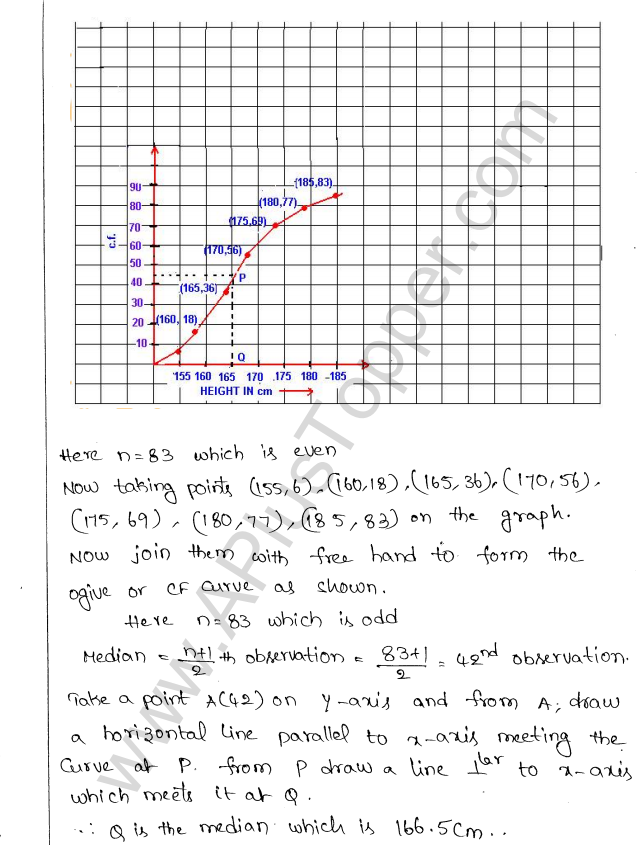 (185,83)
(180,77)
(175,69)
(170,56)
(165,36)
(160, 18)
90
80
70
60
50
40
30
20
10
c.f.
P
Q
155 160 165 170 175 180 185
HEIGHT IN cm
Here n=83 which is even
Now taking points (155,6), (160,18), (165,36), (170,56),
(175,69), (180,77), (185,83) on the graph.
Now join them with free hand to form the
ogive or CF curve as shown.
Here n=83 which is odd
Median = n+1/2 th observation = 83+1/2 = 42nd observation.
Take a point A(42) on y-axis and from A, draw
a horizontal line parallel to x-axis meeting the
curve at P. from P draw a line ⊥lar to x-axis
which meets it at Q.
∴ Q is the median which is 166.5cm..
www.APlusTopper.com